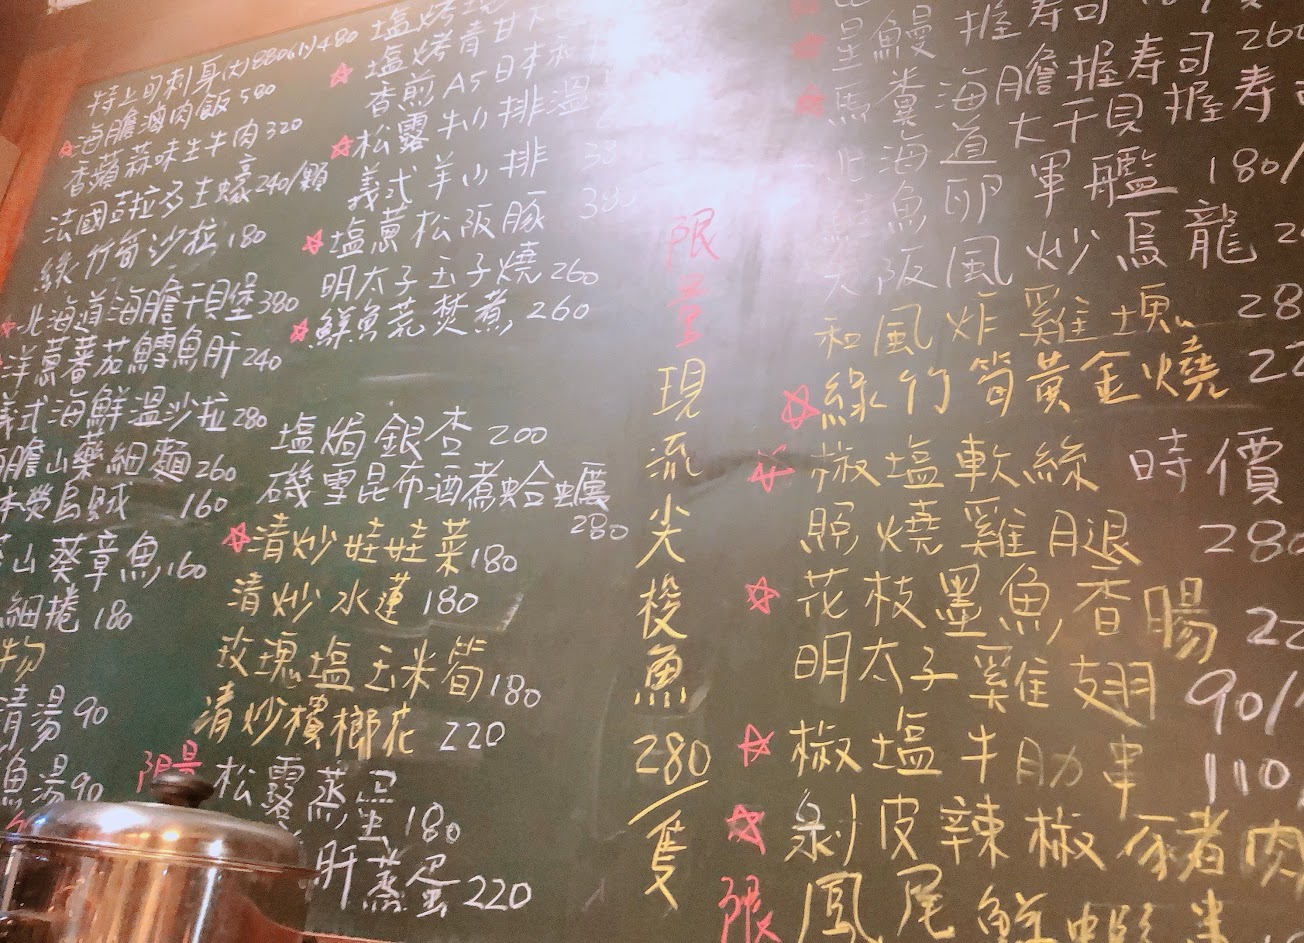 特上旬刺身(大)880(小)480
海膽滷肉飯 580
香蘋蒜味生牛肉 320
法國吉拉多生蠔 240/顆
綠竹筍沙拉 180
北海道海膽干貝堡 380
洋蔥蕃茄鱈魚肝 240
義式海鮮溫沙拉 280
膽山藥細麵 260
烏賊 160
山葵章魚 160
細捲 180
物
清湯 90
魚湯 90
塩烤
塩烤青甘
香煎A5日本和
松露牛小排溫
義式羊小排
塩蔥松阪豚 380
明太子玉子燒 260
鮮魚荒焚煮 260
塩焗銀杏 200
磯雪昆布酒煮蛤蠣
280
清炒娃娃菜 180
清炒水蓮 180
玫瑰塩玉米筍 180
清炒檳榔花 220
限量 松露蒸蛋 180
肝蒸蛋 220
限量
現流尖梭魚
280/隻
星鰻握壽司
馬糞海膽握壽司 260
北海道大干貝握壽司
鮭魚卵軍艦 180/
大阪風炒烏龍
和風炸雞塊 28
綠竹筍黃金燒 22
椒塩軟絲 時價
照燒雞腿 280
花枝墨魚香腸 22
明太子雞翅 90/
椒塩牛肋串 110
剝皮辣椒豬肉
限 鳳尾鮮蝦